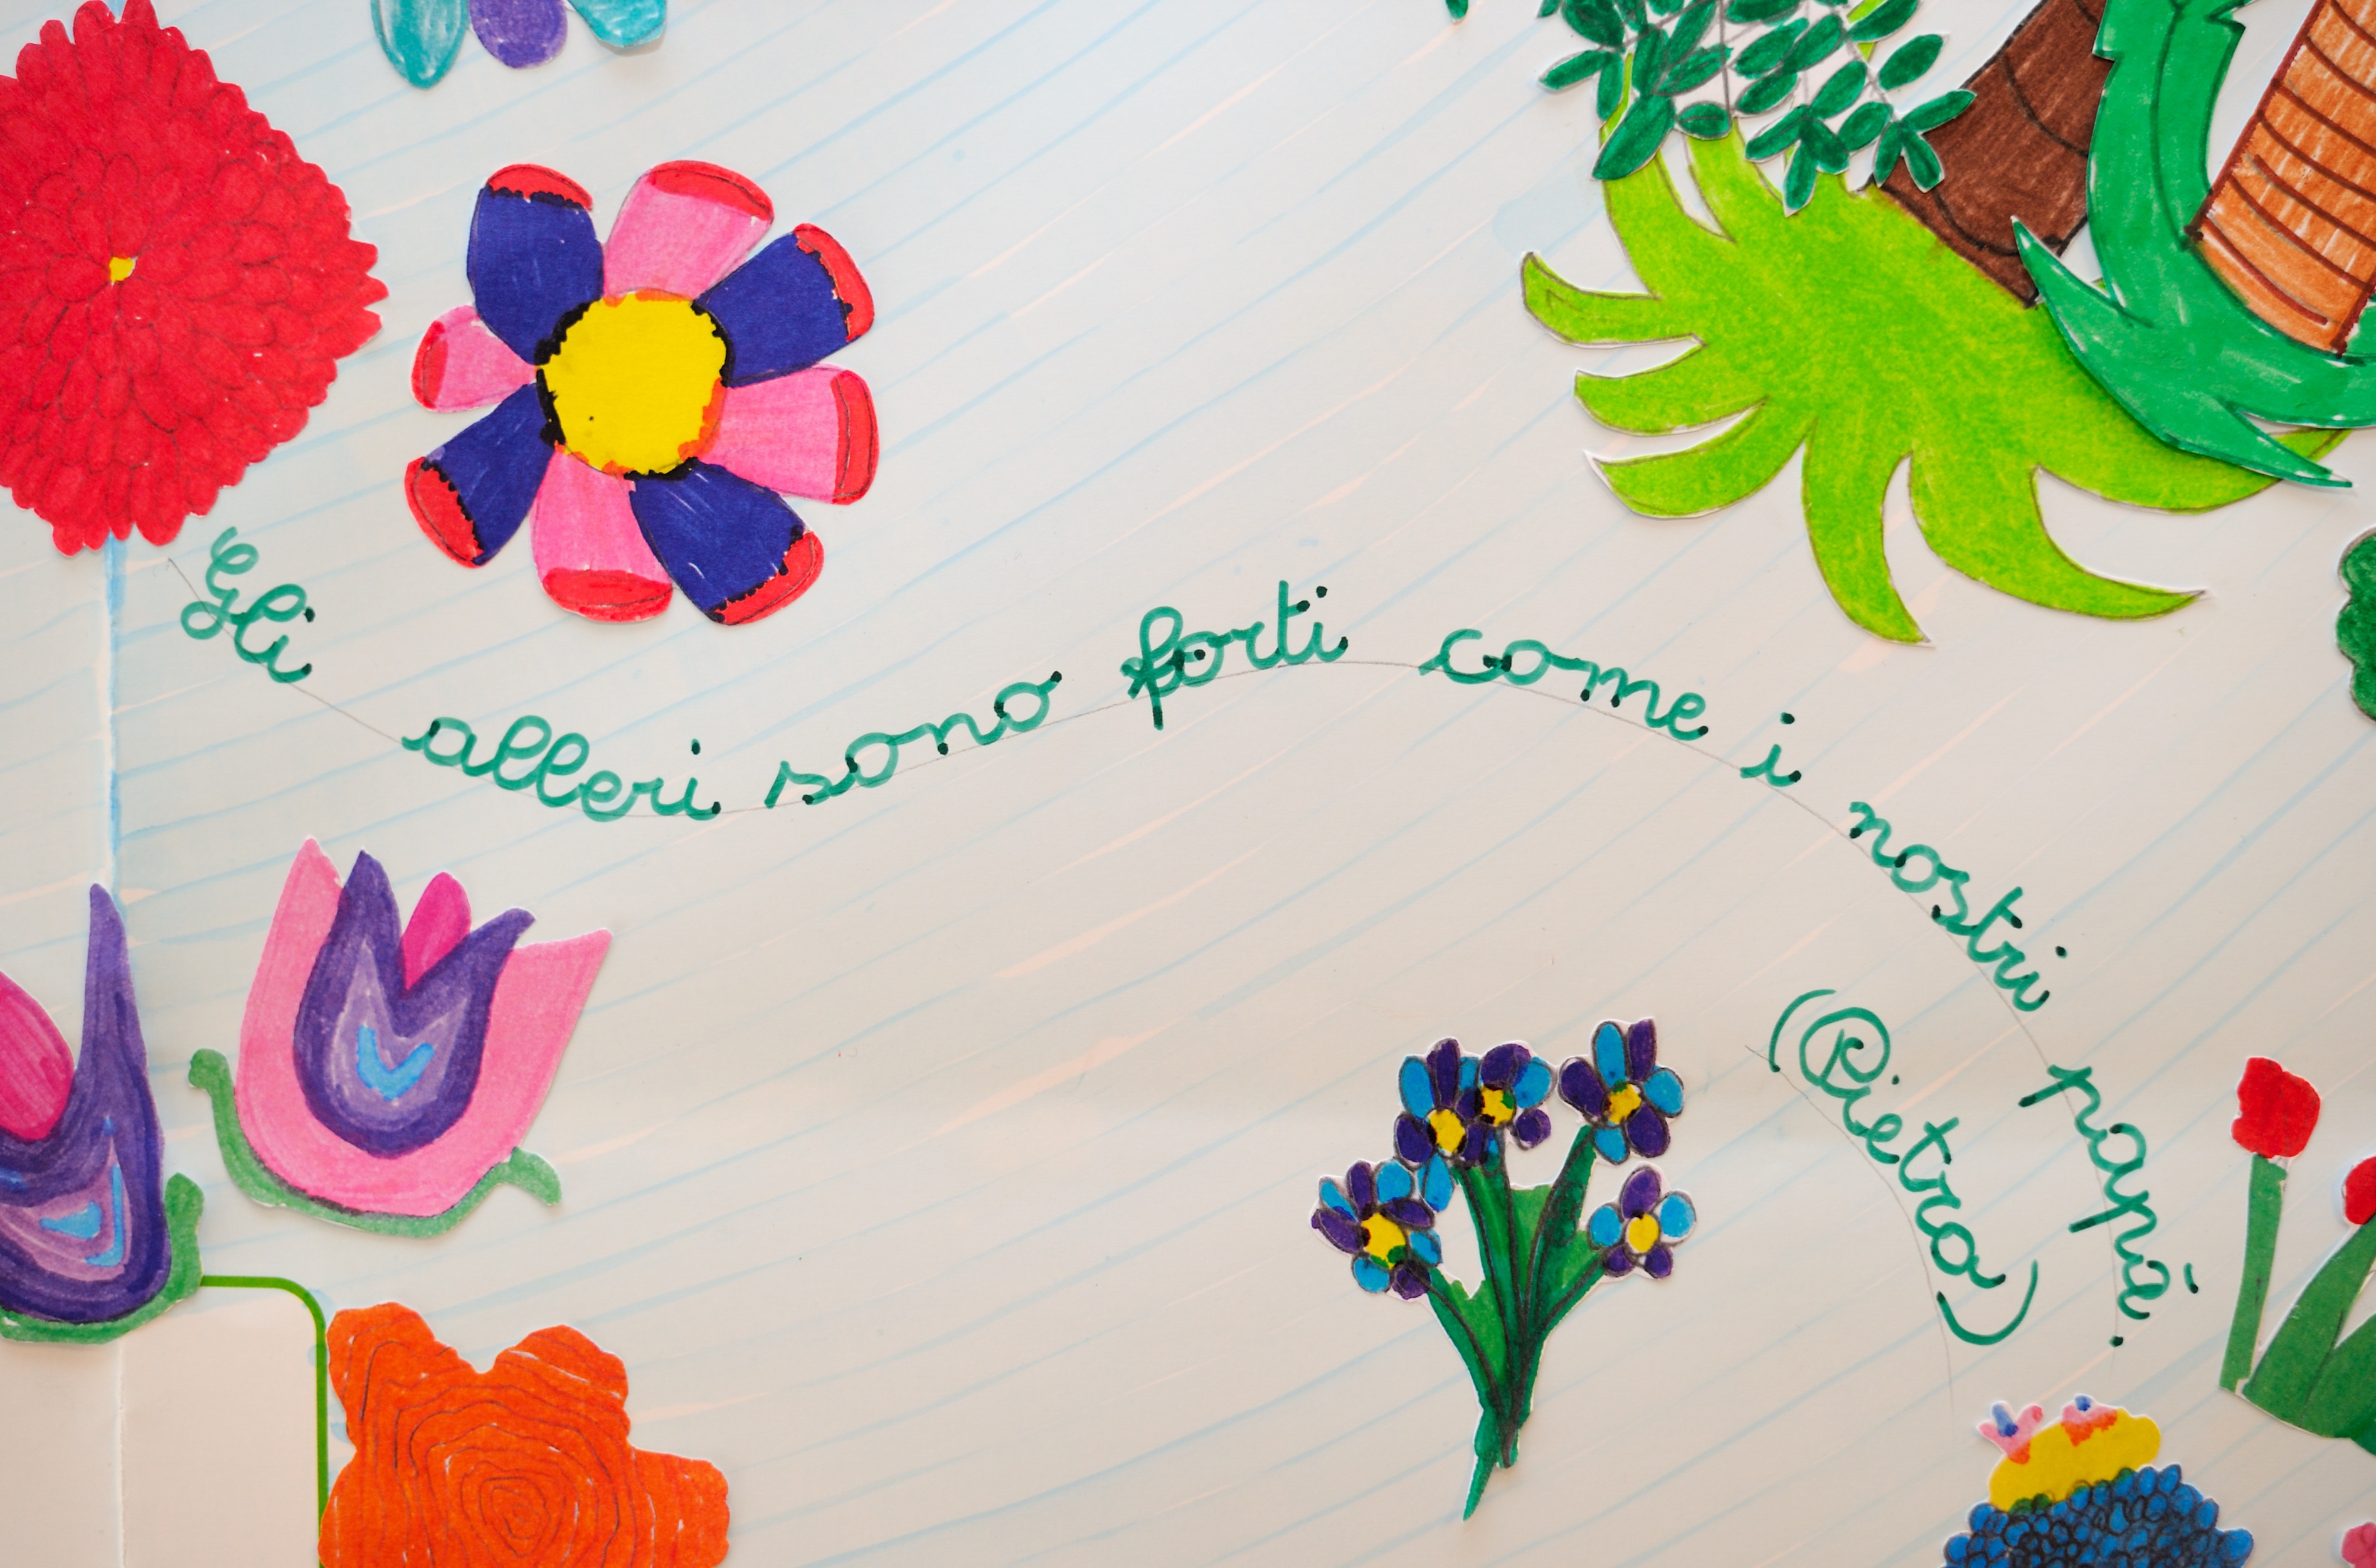 Gli alberi sono forti come i nostri papà.
(Pietro)